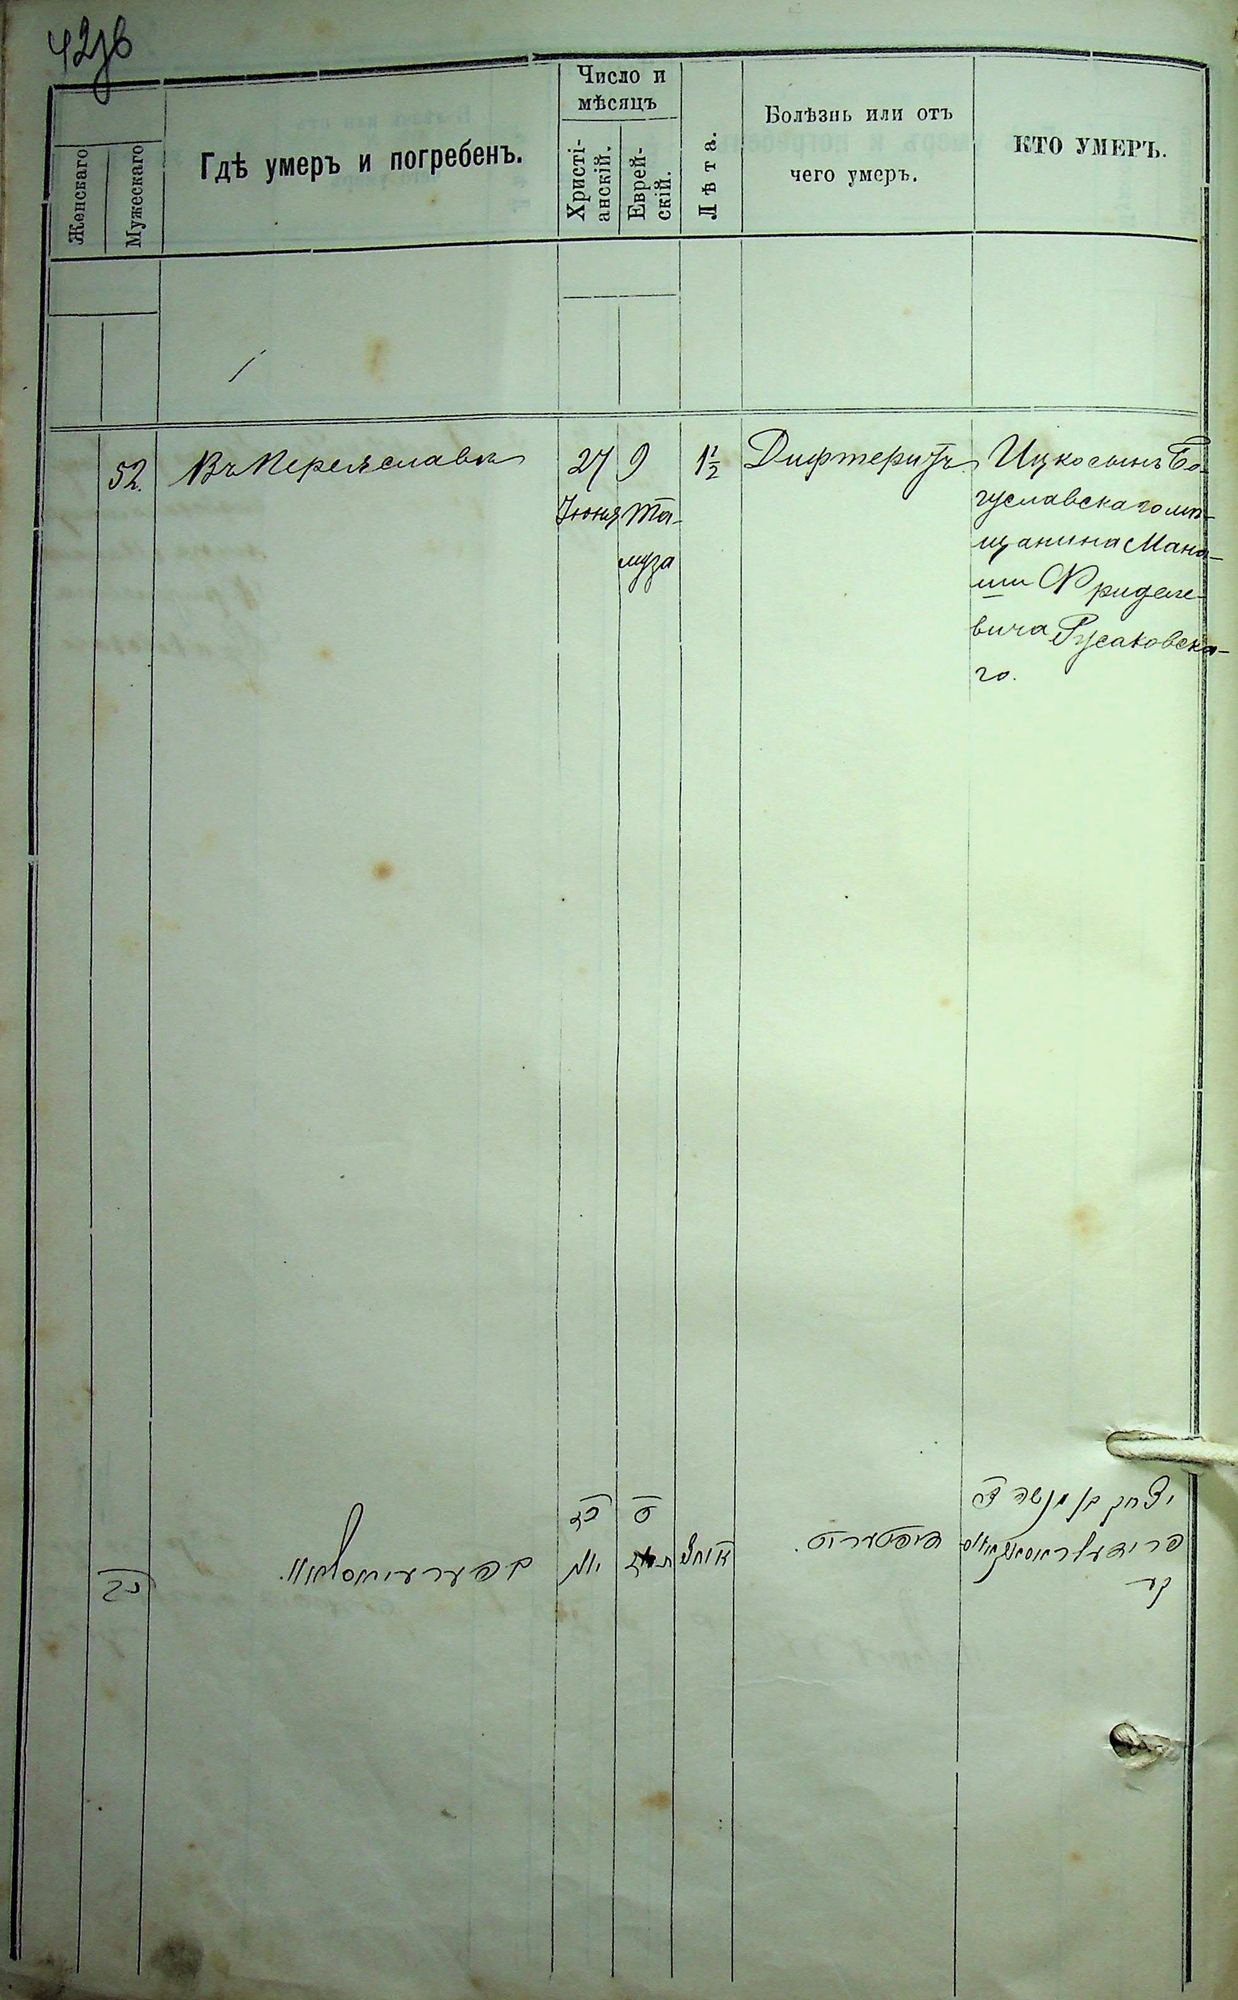 Женскаго
Мужескаго
Гдѣ умеръ и погребенъ.
Число и
мѣсяцъ
Христі-
анскій.
Еврей-
скій.
Лѣта.
Болѣзнь или отъ
чего умеръ.
КТО УМЕРЪ.
52.
Въ Переяславѣ
27
Іюня
9
Та-
муза
1 1/2
Дифтеритъ.
Ицко сынъ Бо-
гуславскаго мѣ-
щанина Мана-
ши Фриделе-
вича Русаковска-
го.
יצחק בן מנשה
דיפטעריט.